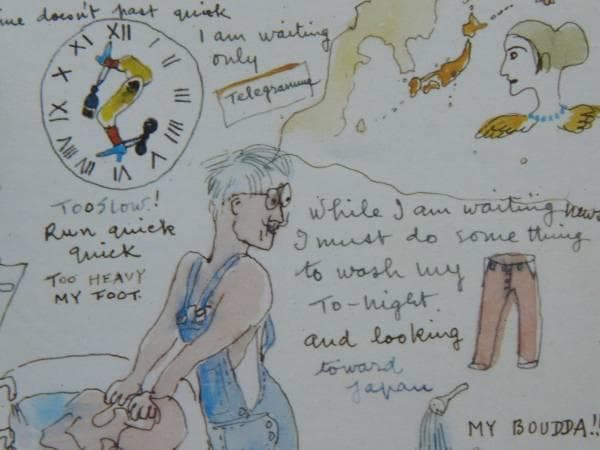 me doesn't past quick
XI XII
X
IX
III
IIII
V
VI
I am waiting
only
Telegramme
TOO SLOW!
Run quick
quick
TOO HEAVY
MY FOOT.
While I am waiting news
I must do some thing
to wash my
To-night.
and looking
toward
Japan
MY BOUDDA!!